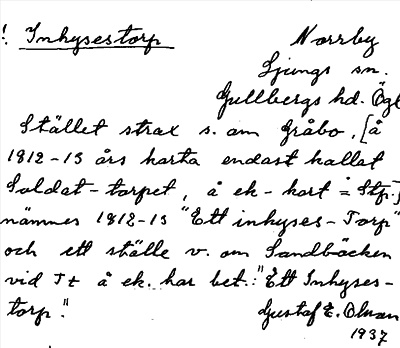 ! Inhysestorp
Norrby
Ljungs sn.
Gullbergs hd. Ögl
Stället strax s. om Gråbo, [å
1812-13 års karta endast kallat
Soldat-torpet, å ek-kart = Stp.]
nämnes 1812-13 "Ett inhyses-Torp"
och ett ställe v. om Sandbäcken
vid Jt å ek. har bet.: "Ett Inhyses-
torp."
Gustaf E. Olman
1937